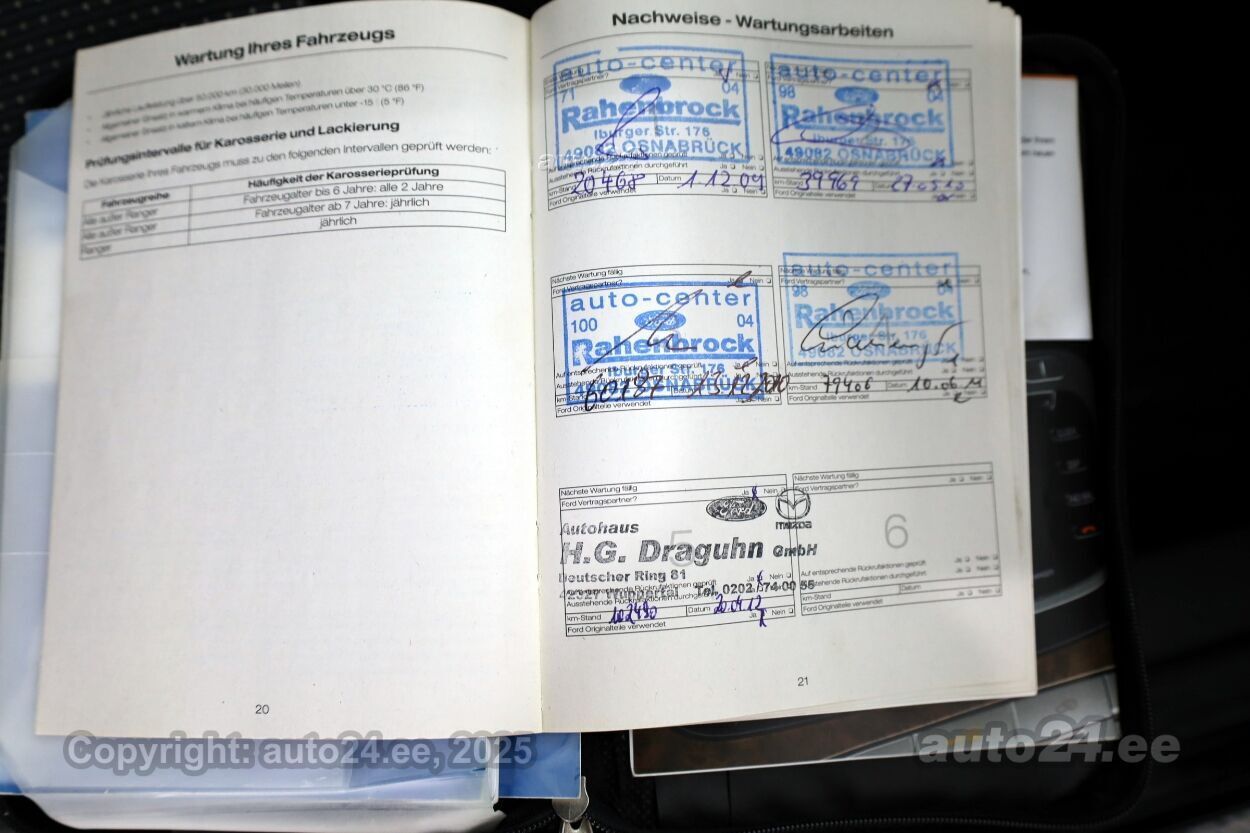 Wartung Ihres Fahrzeugs
Jährliche Laufleistung über 50.000 km (30.000 Meilen)
Allgemeiner Einsatz in warmem Klima bei häufigen Temperaturen über 30 °C (86 °F)
Allgemeiner Einsatz in kaltem Klima bei häufigen Temperaturen unter -15 (5 °F)
Prüfungsintervalle für Karosserie und Lackierung
Die Karosserie Ihres Fahrzeugs muss zu den folgenden Intervallen geprüft werden:
Fahrzeugreihe Häufigkeit der Karosserieprüfung
Alle außer Ranger Fahrzeugalter bis 6 Jahre: alle 2 Jahre
Alle außer Ranger Fahrzeugalter ab 7 Jahre: jährlich
Ranger jährlich
20
Nachweise - Wartungsarbeiten
auto-center
71 04
Rahenbrock
Iburger Str. 176
49082 OSNABRÜCK
Ausstehende Rückrufaktionen durchgeführt Ja Nein
km-Stand 20468 Datum 1.12.09
Ford Originalteile verwendet Ja Nein
auto-center
98 04
Rahenbrock
Iburger Str. 176
49082 OSNABRÜCK
km-Stand 39969 Datum 27.05.10
Ford Originalteile verwendet
Nächste Wartung fällig
Ford Vertragspartner? Ja Nein
auto-center
100 Ford 04
Rahenbrock
Iburger Str. 176
49082 OSNABRÜCK
km-Stand 60787 13.12.2010
Ford Originalteile verwendet Ja Nein
Nächste Wartung fällig
Ford Vertragspartner?
auto-center
98 04
Rahenbrock
Iburger Str. 176
49082 OSNABRÜCK
km-Stand 79406 Datum 10.06.11
Ford Originalteile verwendet
Nächste Wartung fällig
Ford Vertragspartner? Ja Nein
Ford mazda
5
Autohaus
H.G. Draguhn GmbH
Deutscher Ring 81
42327 Wuppertal Tel. 0202/74 00 55
Auf entsprechende Rückrufaktionen geprüft Ja Nein
Ausstehende Rückrufaktionen durchgeführt Ja Nein
km-Stand 102490 Datum 20.04.12
Ford Originalteile verwendet Ja Nein
Nächste Wartung fällig
Ford Vertragspartner? Ja Nein
6
Auf entsprechende Rückrufaktionen geprüft Ja Nein
Ausstehende Rückrufaktionen durchgeführt Ja Nein
km-Stand Datum
Ford Originalteile verwendet Ja Nein
21
Copyright: auto24.ee, 2025
auto24.ee